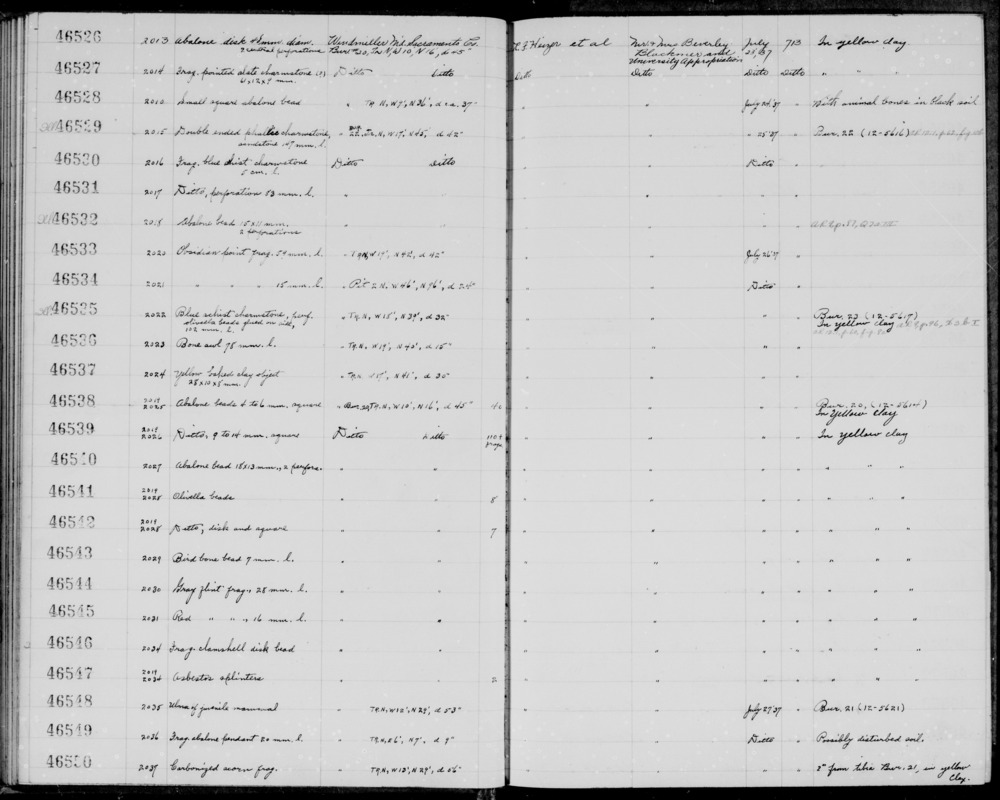 46526 2013 Abalone disk 40 mm. diam. Windmiller Md. Sacramento Co. R. F. Heizer et al Mr. & Mrs. Beverley July 713 In yellow clay
2 central perforations Bur. 20, Tr. N, W10, N16, d 45" Blackmer, and 25, 37
University Appropriation
46527 2014 Frag. pointed slate charmstone Ditto Ditto Ditto Ditto Ditto Ditto " " "
46528 2010 Small square abalone bead " TR. N, W7', N36', d ca. 37" " " July 24, 37 " With animal bones in black soil
46529 2015 Double ended phallic charmstone, " Tr. N, W17', N45', d 42" " " " 25 '37 " Bur. 22 (12-5616)
sandstone 147 mm. l.
46530 2016 Frag. blue schist charmstone Ditto Ditto " " Ditto "
5 cm. l.
46531 2017 Ditto, perforation 83 mm. l. " " " " " "
46532 2018 Abalone bead 15 x 11 mm. " " " " " "
2 perforations
46533 2020 Obsidian point frag. 59 mm. l. " TR. N, W 19', N42, d 42" " " July 26 '37 "
46534 2021 " " " 15 mm. l. " Pit 2 N, W46', N96', d 24" " " Ditto "
46535 2022 Blue schist charmstone, perf. " TR. N, W15', N39', d 32" " " " " Bur. 23 (12-5617)
olivella beads glued on side, In yellow clay
102 mm. l.
46536 2023 Bone awl 75 mm. l. " TR. N, W19', N43', d 15" " " " "
46537 2024 Yellow baked clay object " TR. N N41', d 35" " " " "
28 x 10 x 8 mm.
46538 2019 2025 Abalone beads 4 to 6 mm. square " Bur. 20, TR. N, W10', N16', d 45" 40 " " " " Bur. 20, (12-5614)
In Yellow Clay
46539 2019 2026 Ditto, 9 to 14 mm. square Ditto Ditto 110 + frags " " " " In yellow clay
46540 2027 Abalone bead 18 x 13 mm., 2 perfors. " " " " " " " " "
46541 2019 2028 Olivella beads " " 8 " " " " " " "
46542 2019 2028 Ditto, disk and square " " 7 " " " " " " "
46543 2029 Bird bone bead 7 mm. l. " " " " " " " " "
46544 2030 Gray flint frag., 28 mm. l. " " " " " " " " "
46545 2031 Red " " ., 16 mm. l. " " " " " " " " "
46546 2034 Frag. clamshell disk bead " " " " " " " " "
46547 2019 2034 Asbestos splinters " " 2 " " " " " " "
46548 2035 Ulna of juvenile mammal TR. N, W12', N29', d 53" " " July 27 '37 " Bur. 21 (12-5621)
46549 2036 Frag. abalone pendant 20 mm. l. " TR. N, E6', N7', d 9" " " Ditto " Possibly disturbed soil.
46550 2037 Carbonized acorn frag. " TR. N, W12', N29', d 56" " " " " 2" from tibia Bur. 21, in yellow
Clay.